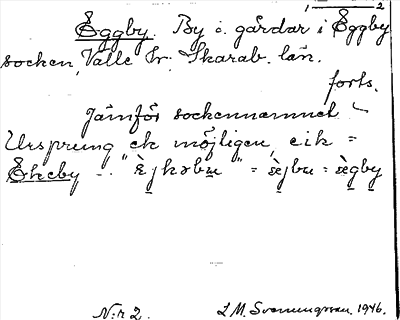 1 2
Eggby. By o. gårdar i Eggby
socken, Valle hr. Skarab. län.
forts.
Jämför sockennamnet
Ursprung ek möjligen, eik =
Ekeby - "ẹ̀jkəbu" = ẹ̀jbu = ègby
N:r 2. J.M. Svenungsson. 1946.